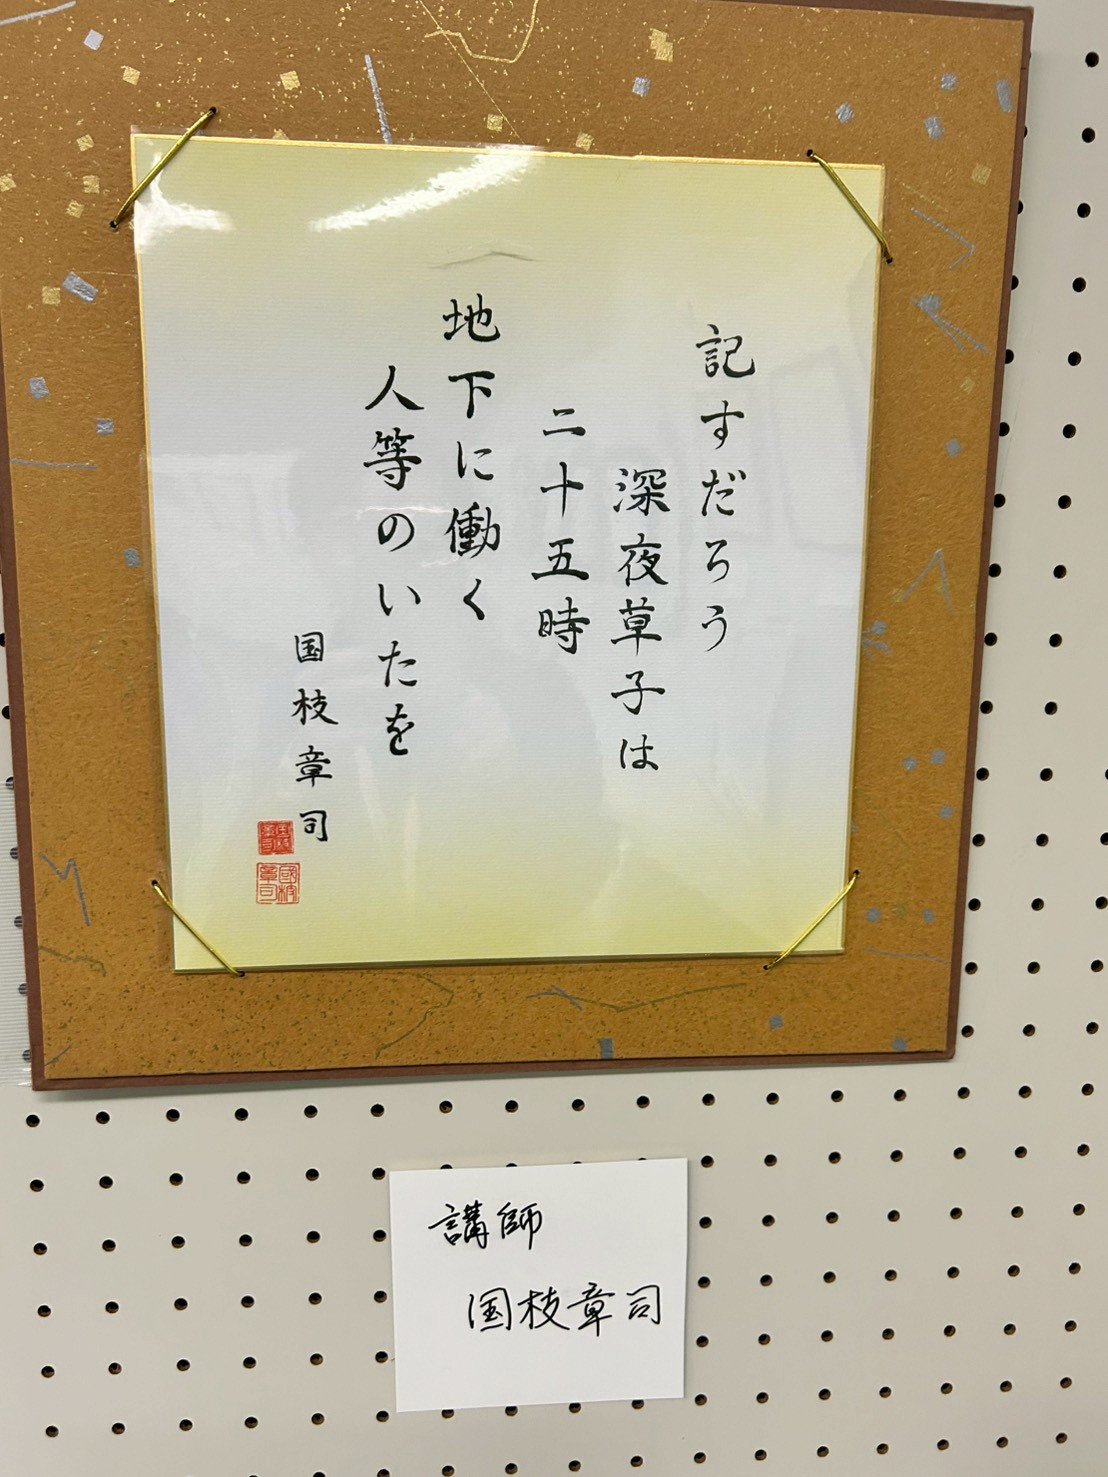 記すだろう
深夜草子は
二十五時
地下に働く
人等のいたを
国枝章司
國枝
章司
講師
国枝章司